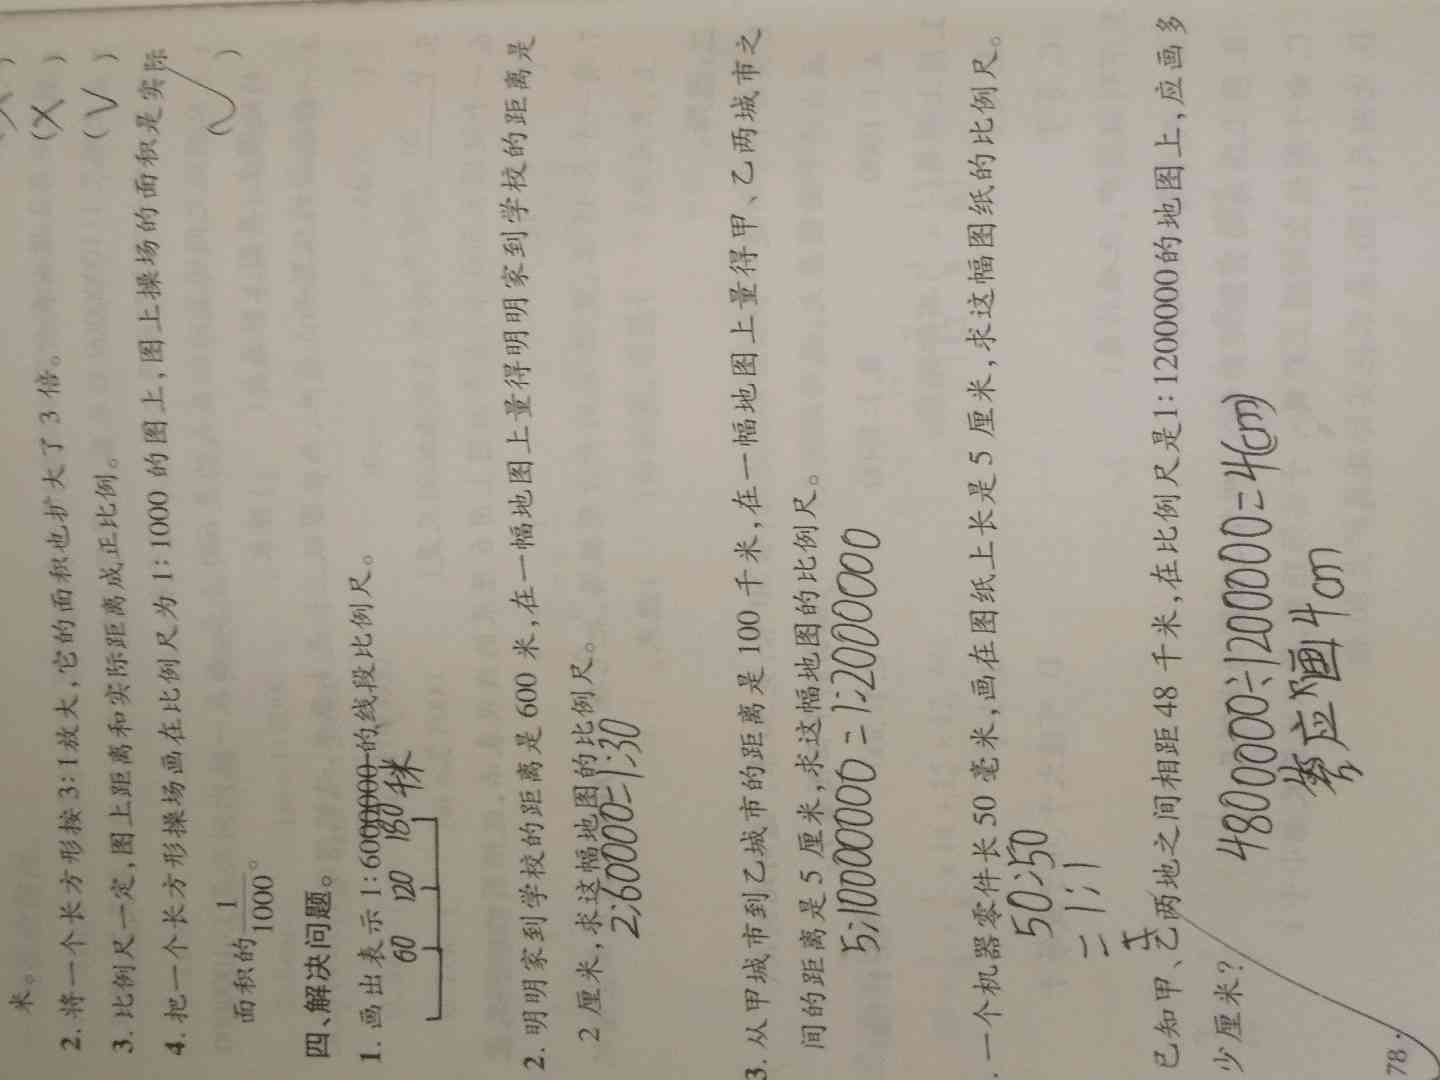 米。
2. 将一个长方形按 3:1 放大,它的面积也扩大了 3 倍。 (X)
3. 比例尺一定,图上距离和实际距离成正比例。 (√)
4. 把一个长方形操场画在比例尺为 1:1000 的图上,图上操场的面积是实际
面积的 1/1000。 (√)
四、解决问题。
1. 画出表示 1:6000000 的线段比例尺。
60 120 180 千米
2. 明明家到学校的距离是 600 米,在一幅地图上量得明明家到学校的距离是
2 厘米,求这幅地图的比例尺。
2:60000=1:30
3. 从甲城市到乙城市的距离是 100 千米,在一幅地图上量得甲、乙两城市之
间的距离是 5 厘米,求这幅地图的比例尺。
5:10000000=1:2000000
. 一个机器零件长 50 毫米,画在图纸上长是 5 厘米,求这幅图纸的比例尺。
50:50
=1:1
已知甲、乙两地之间相距 48 千米,在比例尺是 1:1200000 的地图上,应画多
少厘米?
4800000÷1200000=4(cm)
应画4cm
78